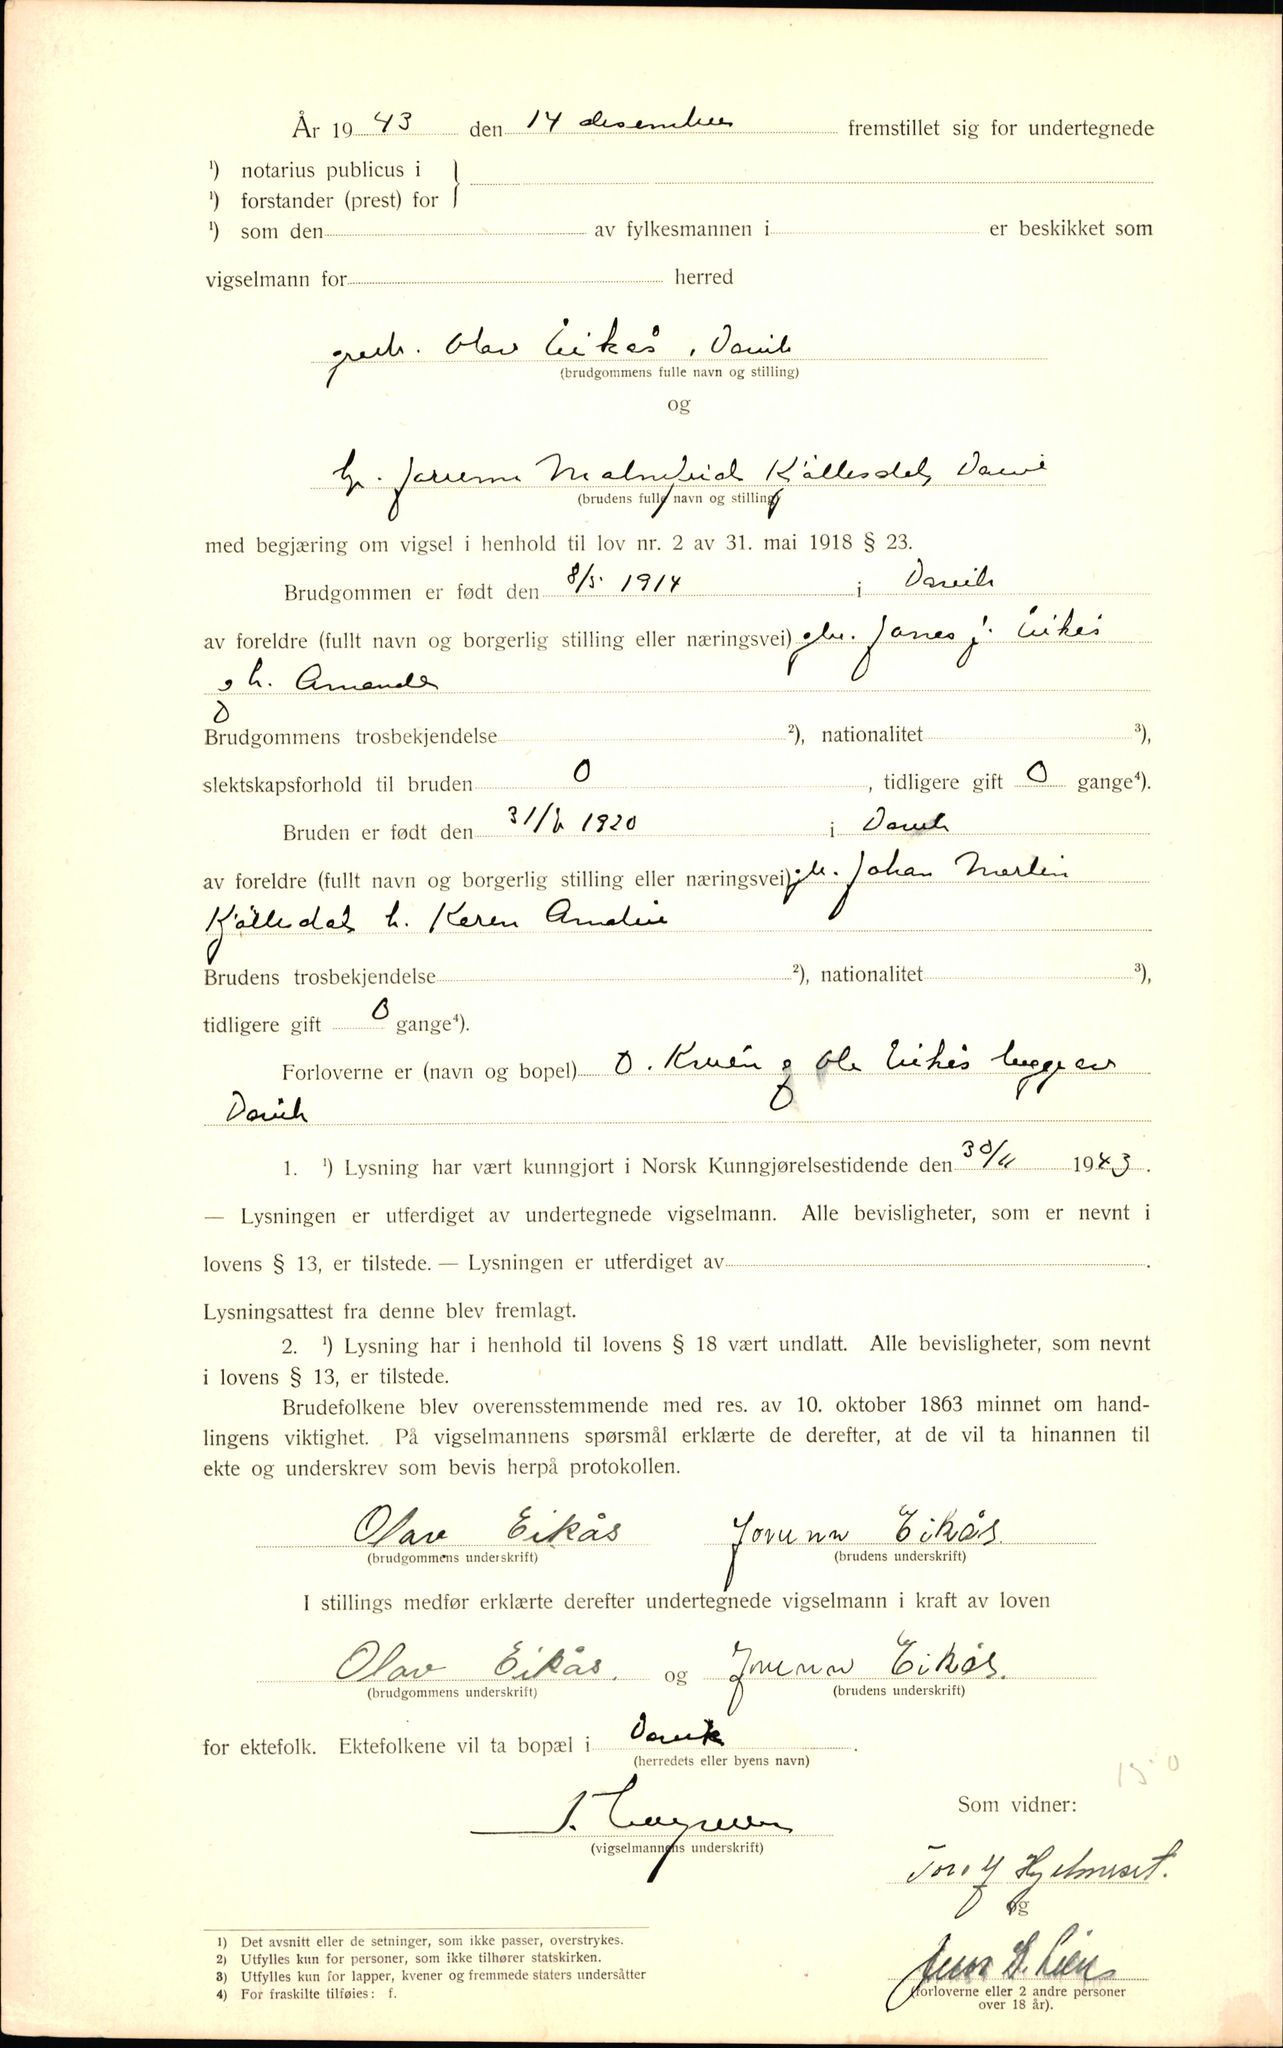 År 1943 den 14 desember fremstillet sig for undertegnede
1) notarius publicus i
1) forstander (prest) for
1) som den av fylkesmannen i er beskikket som
vigselmann for herred
Olav Eikås, Davik
(brudgommens fulle navn og stilling)
og
Jorunn Malmfrid Kjøllesdal, Davik
(brudens fulle navn og stilling)
med begjæring om vigsel i henhold til lov nr. 2 av 31. mai 1918 § 23.
Brudgommen er født den 8/5 1914 i Davik
av foreldre (fullt navn og borgerlig stilling eller næringsvei) gbr. Jonas J. Eikås
o h. Amanda
Brudgommens trosbekjendelse 2), nationalitet 3),
slektskapsforhold til bruden 0, tidligere gift 0 gange4).
Bruden er født den 1920 i Davik
av foreldre (fullt navn og borgerlig stilling eller næringsvei) gbr. Johan Martin
Kjøllesdal h. Karen Amalie
Brudens trosbekjendelse 2), nationalitet 3),
tidligere gift 0 gange4).
Forloverne er (navn og bopel) og Ole Eikås begge av
Davik
1. 1) Lysning har vært kunngjort i Norsk Kunngjørelsestidende den 30/11 1943.
— Lysningen er utferdiget av undertegnede vigselmann. Alle bevisligheter, som er nevnt i
lovens § 13, er tilstede. — Lysningen er utferdiget av .
Lysningsattest fra denne blev fremlagt.
2. 1) Lysning har i henhold til lovens § 18 vært undlatt. Alle bevisligheter, som nevnt
i lovens § 13, er tilstede.
Brudefolkene blev overensstemmende med res. av 10. oktober 1863 minnet om hand-
lingens viktighet. På vigselmannens spørsmål erklærte de derefter, at de vil ta hinannen til
ekte og underskrev som bevis herpå protokollen.
Olav Eikås Jorunn Eikås
(brudgommens underskrift) (brudens underskrift)
I stillings medfør erklærte derefter undertegnede vigselmann i kraft av loven
Olav Eikås. og Jorunn Eikås.
(brudgommens underskrift) (brudens underskrift)
for ektefolk. Ektefolkene vil ta bopæl i Davik.
(herredets eller byens navn)
150
Som vidner:
(vigselmannens underskrift)
Hjelmeset.
og
Jens D. Lien
(forloverne eller 2 andre personer
over 18 år).
1) Det avsnitt eller de setninger, som ikke passer, overstrykes.
2) Utfylles kun for personer, som ikke tilhører statskirken.
3) Utfylles kun for lapper, kvener og fremmede staters undersåtter
4) For fraskilte tilføies: f.